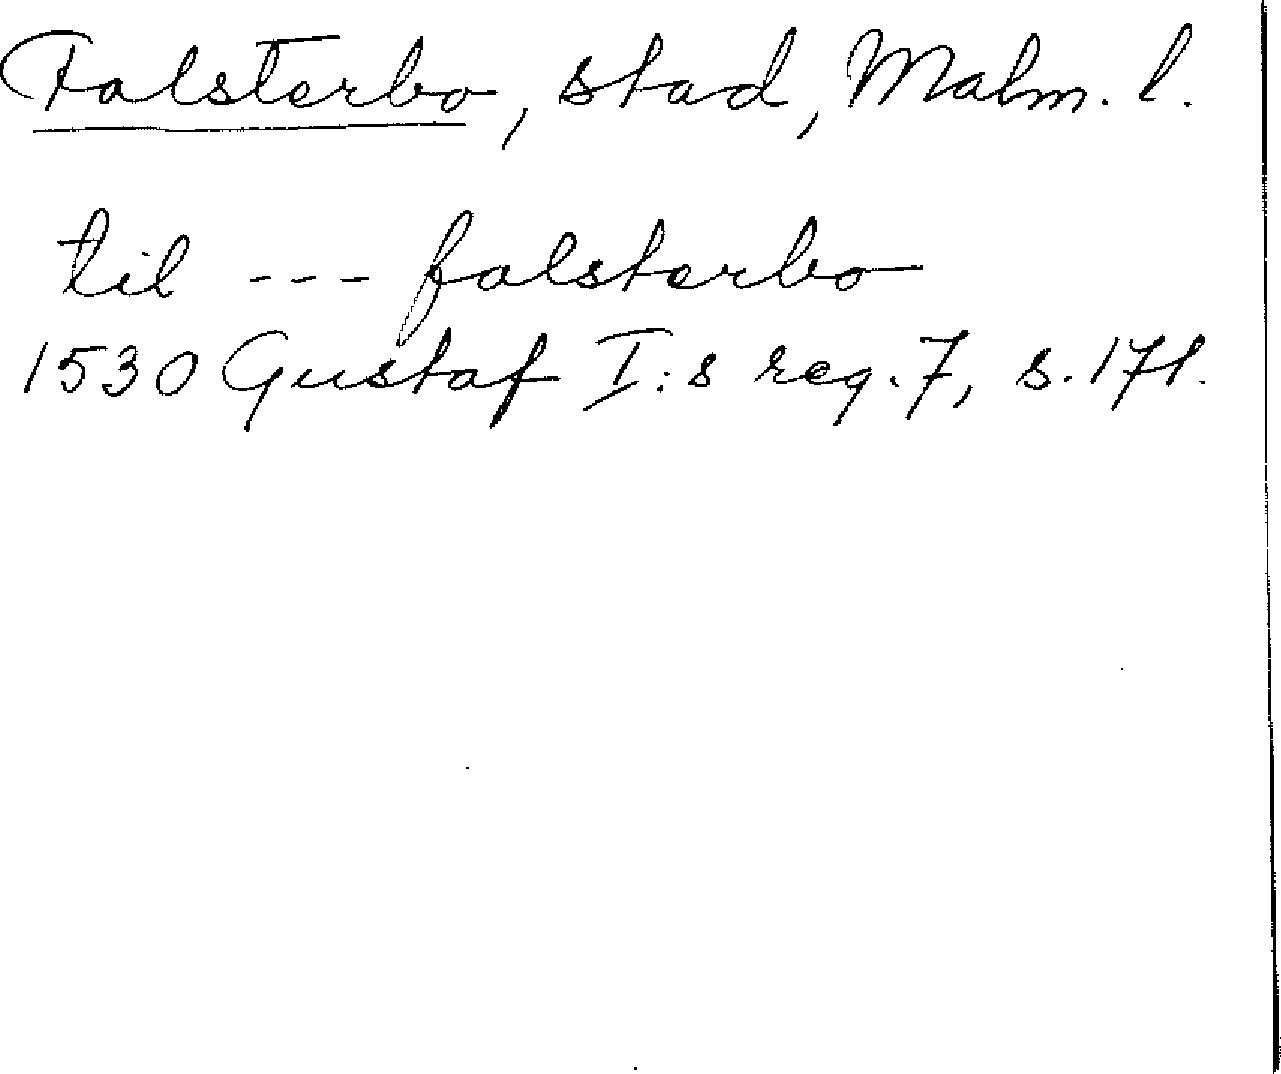 Falsterbo, stad, Malm. l.
til --- falsterbo
1530 Gustaf I:s reg. 7, s. 171.